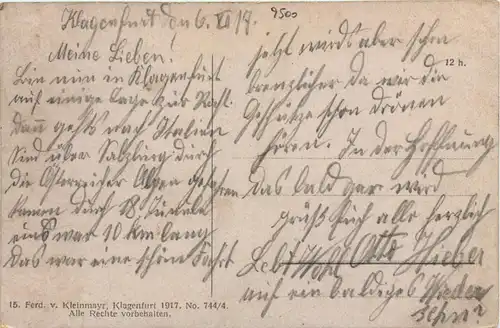 Klagenfurt den 6. XI 17.
9500
Meine Lieben!
Bin nun in Klagenfurt
auf einige Tage zur Rast.
Dann gehts nach Italien
sind über Salzburg durch
die Österreicher Alpen gefahren
kamen durch 18 Tunnele
eins war 10 Km lang
Das war eine schöne Fahrt
jetzt wirds aber schon
brenzlicher da wir die
Geschütze schon drönen
hören. In der Hoffnung
das bald gar wird
grüßt Euch alle herzlich
Otto Hieber
Lebt Wohl
auf ein baldiges Wieder
sehn!
12 h.
15. Ferd. v. Kleinmayr, Klagenfurt 1917. No. 744/4.
Alle Rechte vorbehalten.